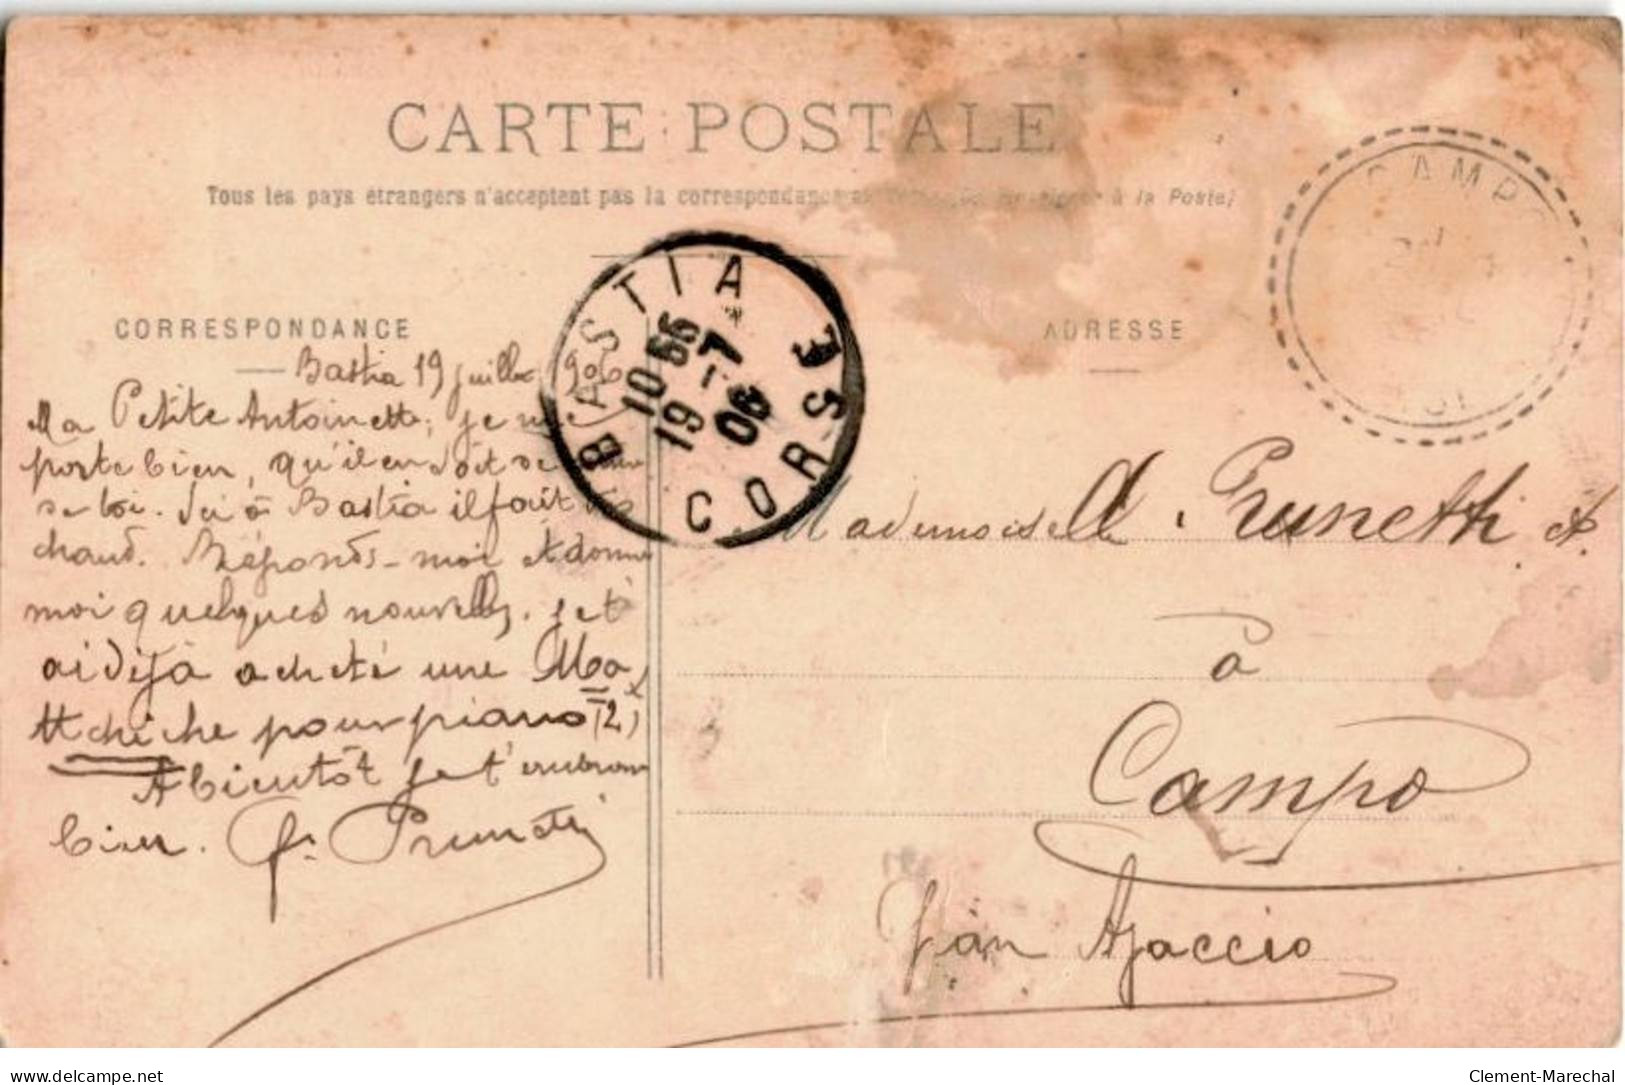 CARTE POSTALE
Tous les pays étrangers n'acceptent pas la correspondance à la Poste)
CORRESPONDANCE
ADRESSE
BASTIA
10 55
19 -7
06
CORSE
CAMPO
Bastia 19 juillet 906
Ma Petite Antoinette, je me
porte bien, qu'il en doit de
de toi. Ici à Bastia il fait
chaud. Réponds-moi et donne
moi quelques nouvelles. Je t'
ai déjà acheté une Ma
ttchiche pour piano (2)
A bientôt je t'embrasse
bien. J. Prunetti
Mademoiselle Prunetti A.
à
Campo
par Ajaccio
delcampe.net
Clement-Marechal